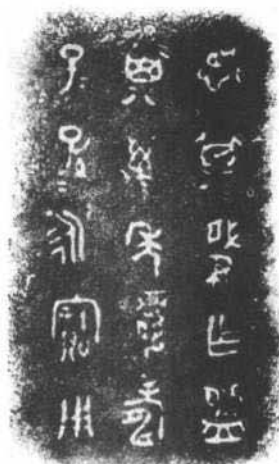 君乍
其萬年眉壽
子孫永寶用